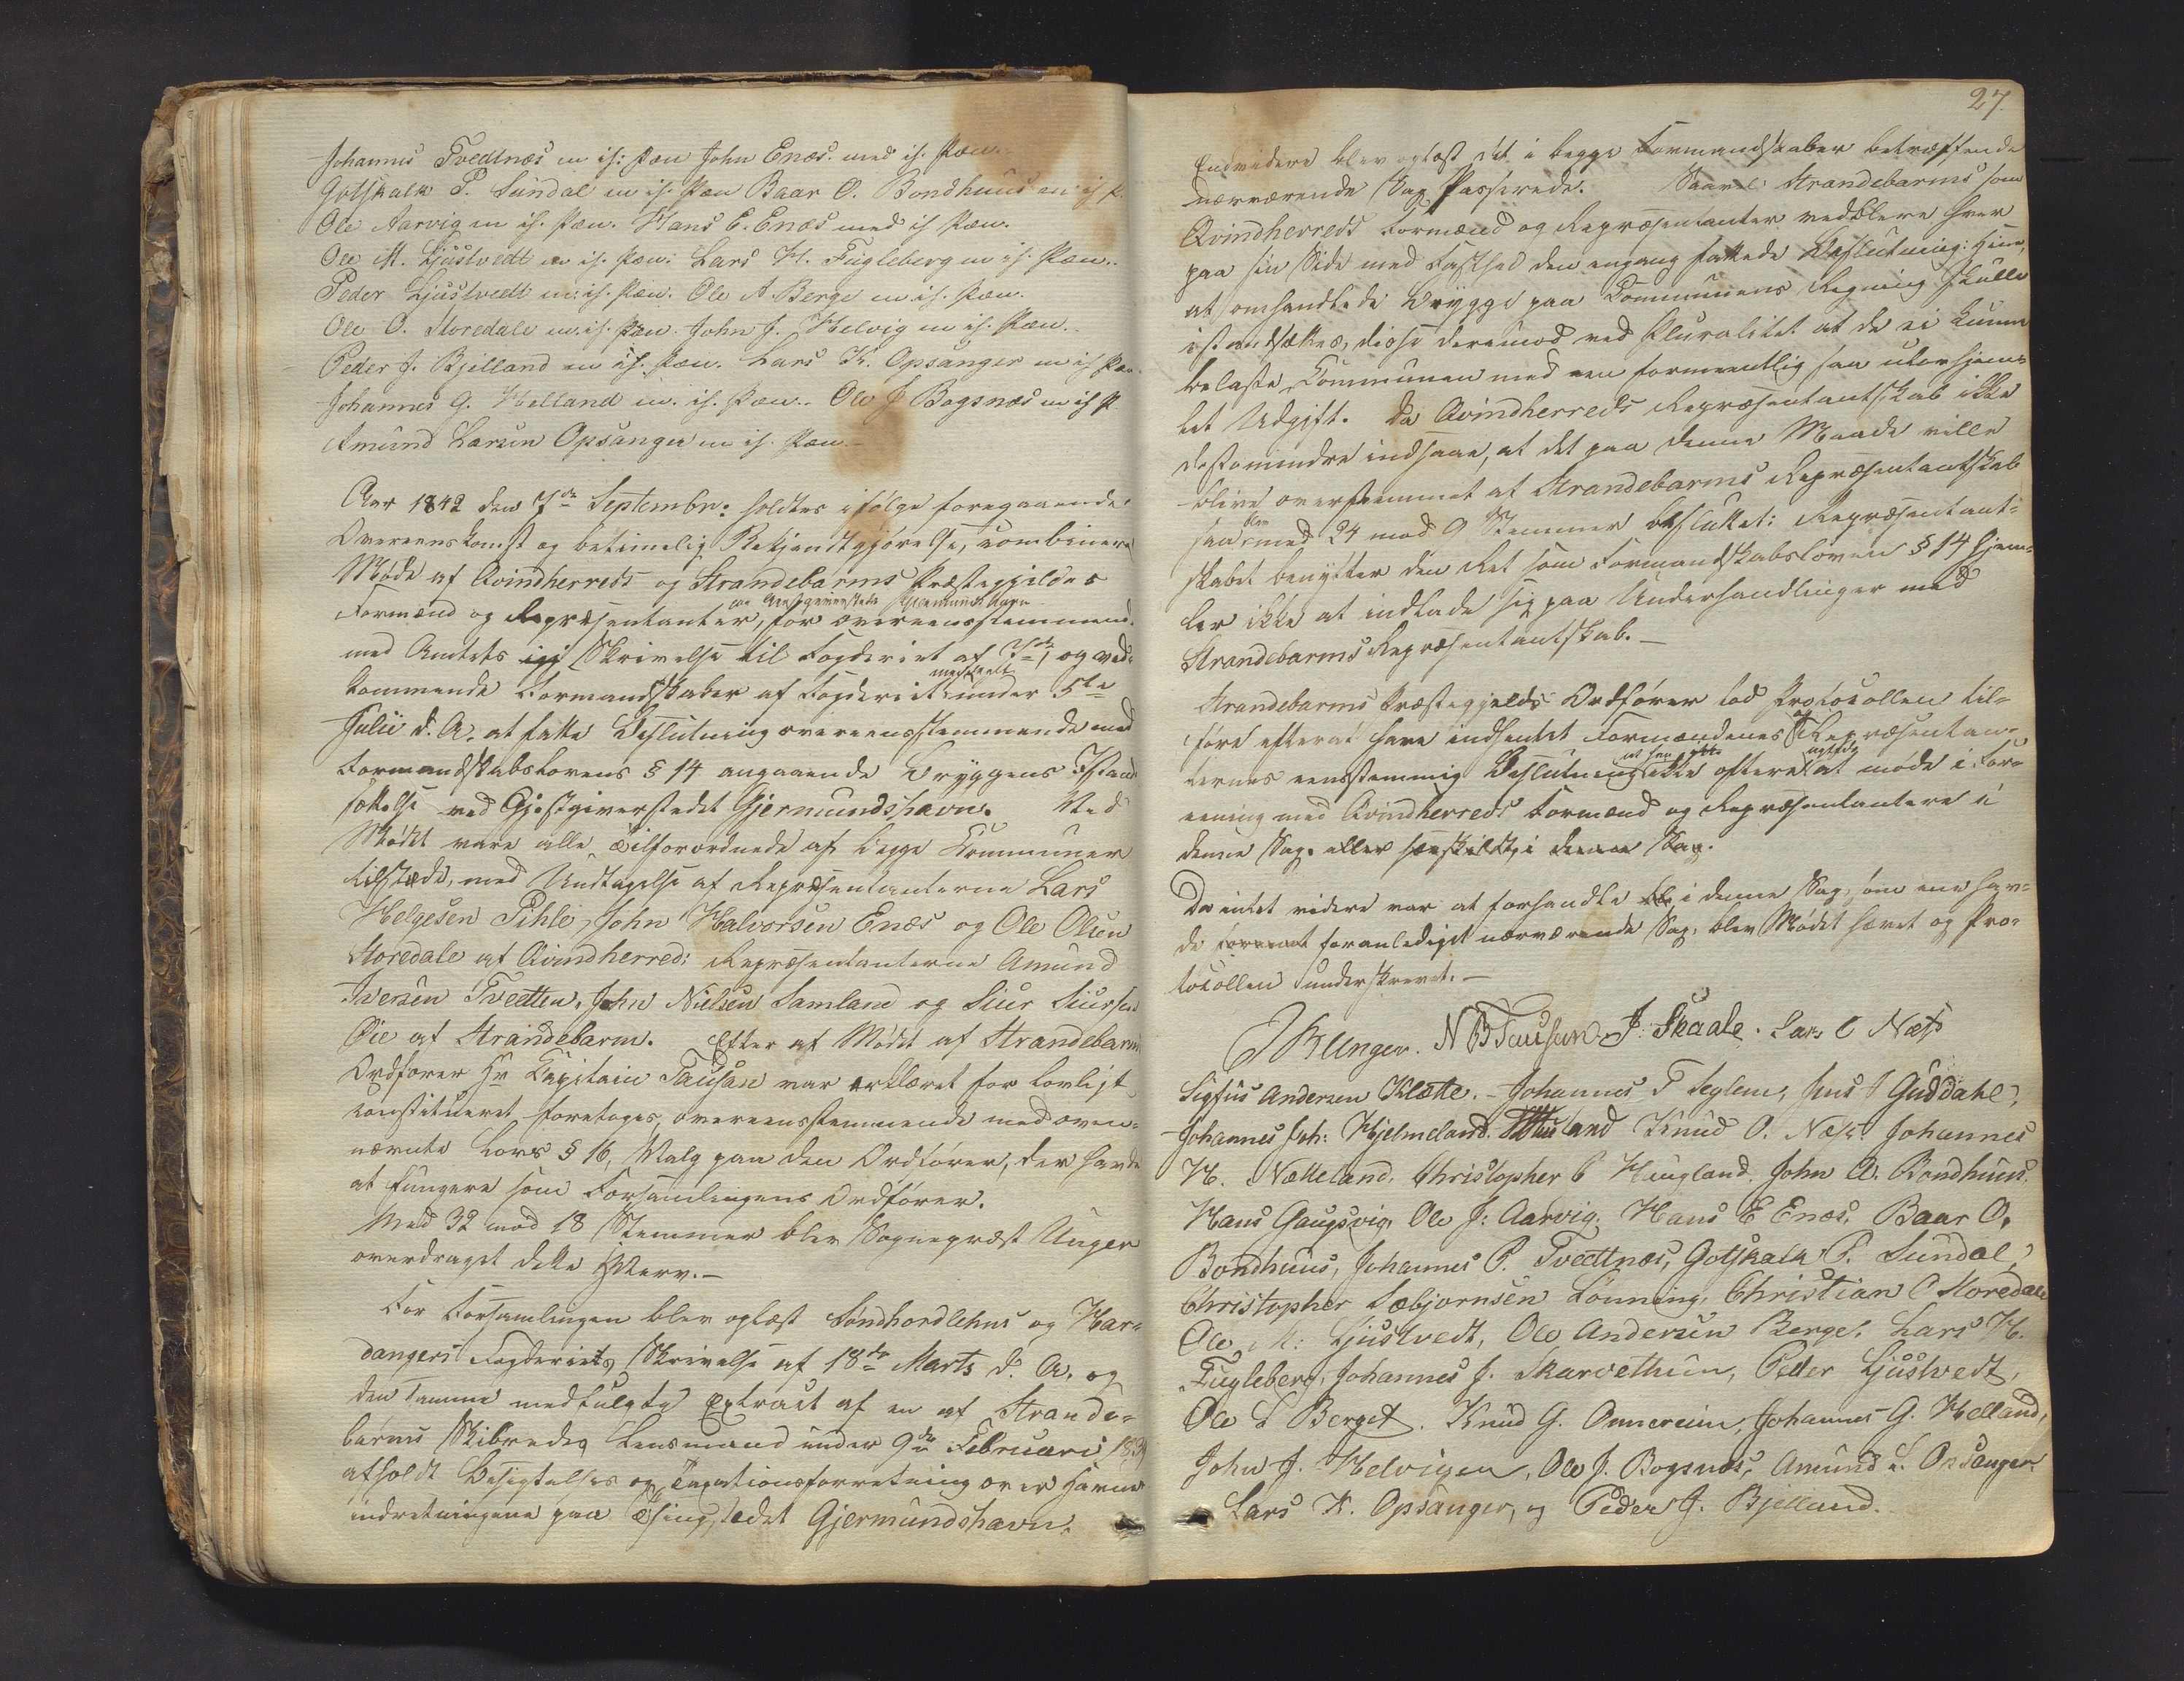 Johannes Tvedtnæs m ih: Pæn John Enæs. med ih. Pæn.
Gotskalk P. Sundal m ih. Pæn Baar O. Bondhuus m ih P.
Ole Aarvig m ih. Pæn. Hans E. Enæs med ih Pæn.
Ole M. Ljustvedt m ih. Pæn: Lars H. Fugleberg m ih. Pæn.
Peder Ljustvedt m: ih. Pæn. Ole A Berge m ih. Pæn.
Ole O. Storedale m. ih. Pæn. John J. Helvig m ih. Pæn.
Peder J. Bjelland m ih. Pæn. Lars K. Opsanger m ih Pæn.
Johannes G. Helland m. ih. Pæn. Ole J Bogsnæs m ih P
Amund Larsen Opsanger m ih. Pæn.
Aar 1842 den 7de Septembr: holdtes ifølge foregaaende
Overeenskomst og betimelig Bekjendtgjørelse, combineret
Møde af Qvindherreds og Strandebarms Præstegjeldes
Formænd og Repræsentanter, for overeensstemmende
med Amtets Skrivelse til Fogderiet af og ved-
kommende Formandskaber af Fogderiet meddeelt under 5te
Julii d. A. at fatte Beslutning overeensstemmende med
Formandskabslovens § 14 angaaende Bryggens Istand-
sættelse ved Gjestgiverstedet Gjermundshavn. Ved
Mødet vare alle Tilforordnede af begge Kommuner
tilstæde, med Undtagelse af Repræsentanterne Lars
Helgesen Pihle, John Halvorsen Enæs og Ole Olsen
Storedale af Qvindherred; Repræsentanterne Amund
Iversen Tveitten, John Nielsen Samland og Siur Siursen
Øie af Strandebarm. Efter at Mødet af Strandebarms
Ordfører Hr Kapitain Tausan var erklæret for lovligt
constitueret foretoges, overeensstemmende med oven-
nævnte Lovs § 16, Valg paa den Ordfører, der havde
at fungere som Forsamlingens Ordfører.
Med 32 mod 18 Stemmer blev Sognepræst Unger
overdraget dette Hverv.-
For Forsamlingen blev oplæst Søndhordlehns og Har-
dangers Fogderiets Skrivelse af 18de Marts d. A. og
den samme medfulgte Extract af en af Strande-
barms Skibredes Lensmand under 9de Februari
afholdt Besigtelses og Taxationsforretning over Havne-
indretningene paa Thingstedet Gjermundshavn.
27.
Endvidere blev oplæst det i begge Formandskaber betræffende
nærværende Sag Passerede. Saavel Strandebarms som
Qvindherreds Formænd og Repræsentanter vedbleve hver
paa sin Side med Fasthed den engang fattede Beslutning: hine,
at omhandlede Brygge paa Communens Regning skulle
istandsættes, disse derimod ved Pluralitet at de ei kunne
belaste Communen med een formeentlig saa uberhjem-
let Udgift. Da Qvindherreds Repræsentantskab ikke
destomindre indsaae, at det paa denne Maade ville
blive overstemmet af Strandebarms Repræsentantskab
saa blev med 24 mod 9 Stemmer besluttet: Repræsentant-
skabet benytter den Ret som Formandskabsloven § 14 hjem-
ler ikke at indlade sig paa Underhandlinger med
Strandebarms Repræsentantskab.-
Strandebarms Præstegjelds Ordfører lod Protocollen til-
føre efterat have indhentet Formændenes og Repræsentan-
ternes eensstemmig Beslutning ikke oftere at møde i For-
eening med Qvindherreds Formænd og Repræsentantere i
denne Sag. eller særskildt i denne Sag.
Da intet videre var at forhandle i denne Sag, som ene hav-
de foranlediget nærværende Sag, blev Mødet hævet og Pro-
tocollen underskrevet.-
JB Unger. N B Tausan J. Skaale. Lars C Næss
Sigfus Andersen Klætte. - Johannes T Teglem, Jens J Guddahl,
Johannes Joh: Hjelmeland. Knud O. Næss. Johannes
H. Nætteland, Christopher C Haugland. John A. Bondhuus.
Hans Gaugsvig, Ole J: Aarvig. Hans E Enæs, Baar O.
Bondhuus, Johannes P. Tvedtnæs, Gotskalk P. Sundal,
Christopher Sæbjørnsen Lønning, Christian C Storedale
Ole M: Ljustvedt, Ole Andersen Berge, Lars H.
Fugleberg, Johannes J. Skarvethun, Peder Ljustvedt,
Ole L Berget. Knud G. Omvereim, Johannes G. Helland,
John J. Helvigen, Ole J. Bogsnæs, Amund L. Opsanger
Lars K. Opsanger, og Peder J. Bjelland.